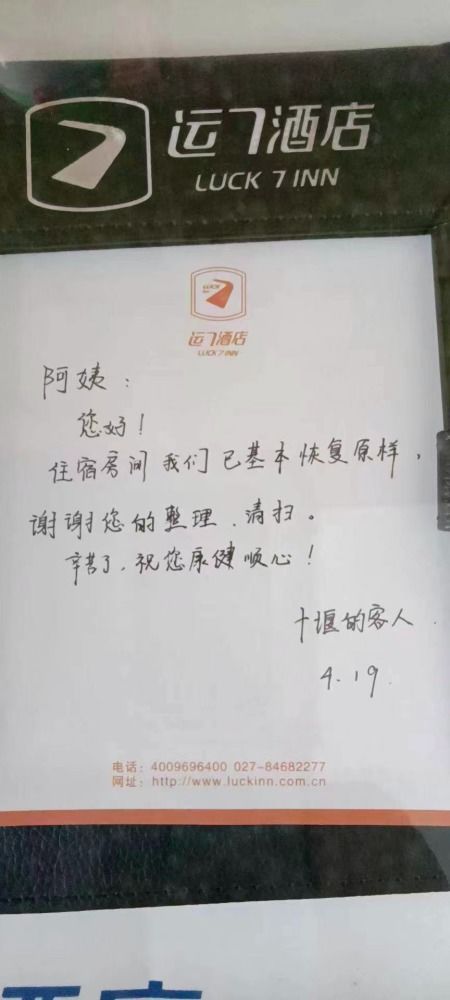 运7酒店
LUCK 7 INN
LUCK
运7酒店
LUCK 7 INN
阿姨：
您好！
住宿房间我们已基本恢复原样，
谢谢您的整理、清扫。
辛苦了，祝您康健顺心！
十堰的客人
4.19.
电话：4009696400 027-84682277
网址：http://www.luckinn.com.cn